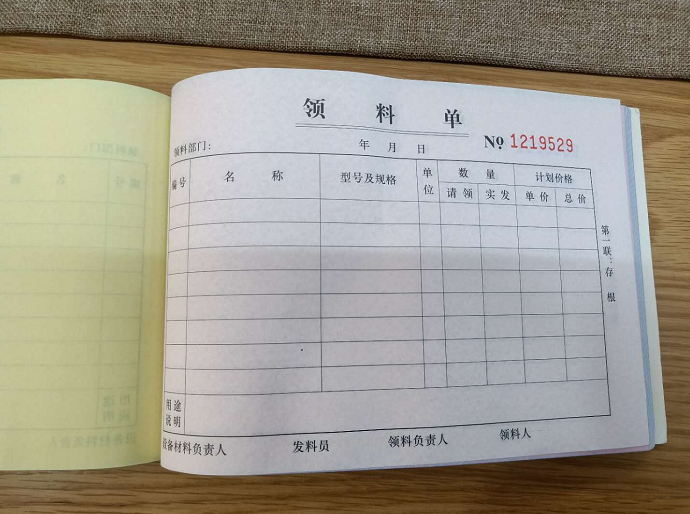 领 料 单
领料部门: 年 月 日 № 1219529
编号 名 称 型号及规格 单位 数 量 计划价格
请 领 实 发 单 价 总 价
第一联:存 根
用途说明
设备材料负责人 发料员 领料负责人 领料人